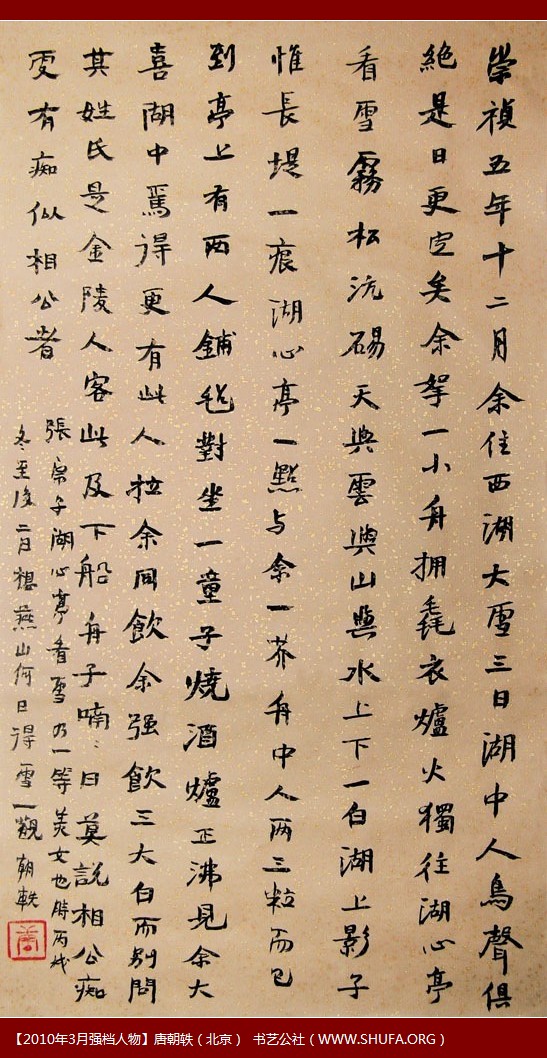 崇禎五年十二月余住西湖大雪三日湖中人鳥聲俱
絶是日更定矣余挐一小舟拥毳衣爐火獨往湖心亭
看雪霧松沆碭天與雲與山與水上下一白湖上影子
惟長堤一痕湖心亭一點与余一芥舟中人两三粒而已
到亭上有两人鋪毡對坐一童子燒酒爐正沸見余大
喜湖中焉得更有此人拉余同飲余强飲三大白而别問
其姓氏是金陵人客此及下船舟子喃〻曰莫說相公痴
更有痴似相公者
張宗子湖心亭看雪乃一等美女也時丙戌
冬至後二日想燕山何日得雪一觀朝軼
【2010年3月强档人物】唐朝轶（北京） 书艺公社（WWW.SHUFA.ORG）